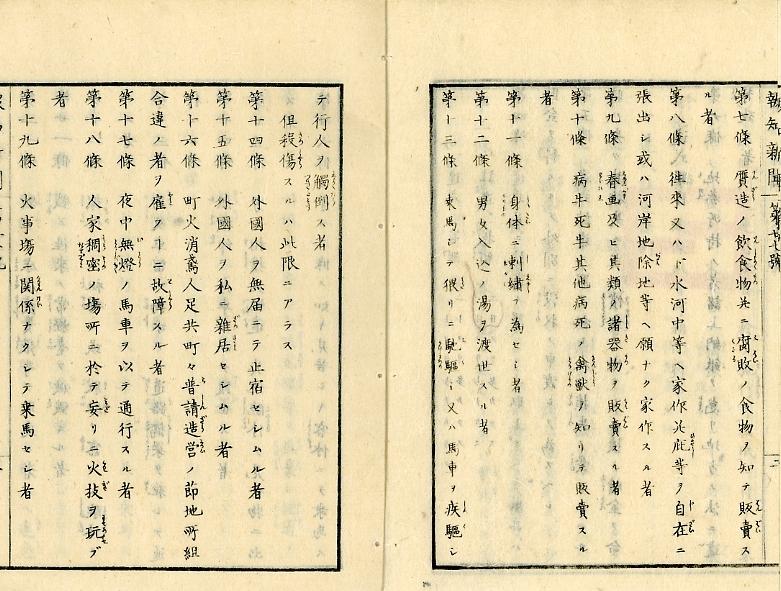 報知新聞 第七十七號
二
第七條 贋造ノ飲食物并ニ腐敗ノ食物ヲ知テ販賣ス
ル者
第八條 往來又ハ下水河中等ヘ家作并庇等ヲ自在ニ
張出シ或ハ河岸地除地等ヘ願ナク家作スル者
第九條 春画及ヒ其類ノ諸器物ヲ販賣スル者
第十條 病牛死牛其他病死ノ禽獣ヲ知リテ販賣スル
者
第十一條 身体ニ刺繍ヲ為セシ者
第十二條 男女入込ノ湯ヲ渡世スル者
第十三條 乗馬シテ猥リニ馳驅シ又ハ馬車ヲ疾驅シ
テ行人ヲ觸倒ス者
但殺傷スルハ此限ニアラス
第十四條 外國人ヲ無届ニテ止宿セシムル者
第十五條 外國人ヲ私ニ雜居セシムル者
第十六條 町火消鳶人足共町々普請造営ノ節地所組
合違ノ者ヲ雇フヿニ故障スル者
第十七條 夜中無燈ノ馬車ヲ以テ通行スル者
第十八條 人家稠密ノ場所ニ於テ妄リニ火技ヲ玩フ
者
第十九條 火事場ニ関係ナクシテ乗馬セシ者